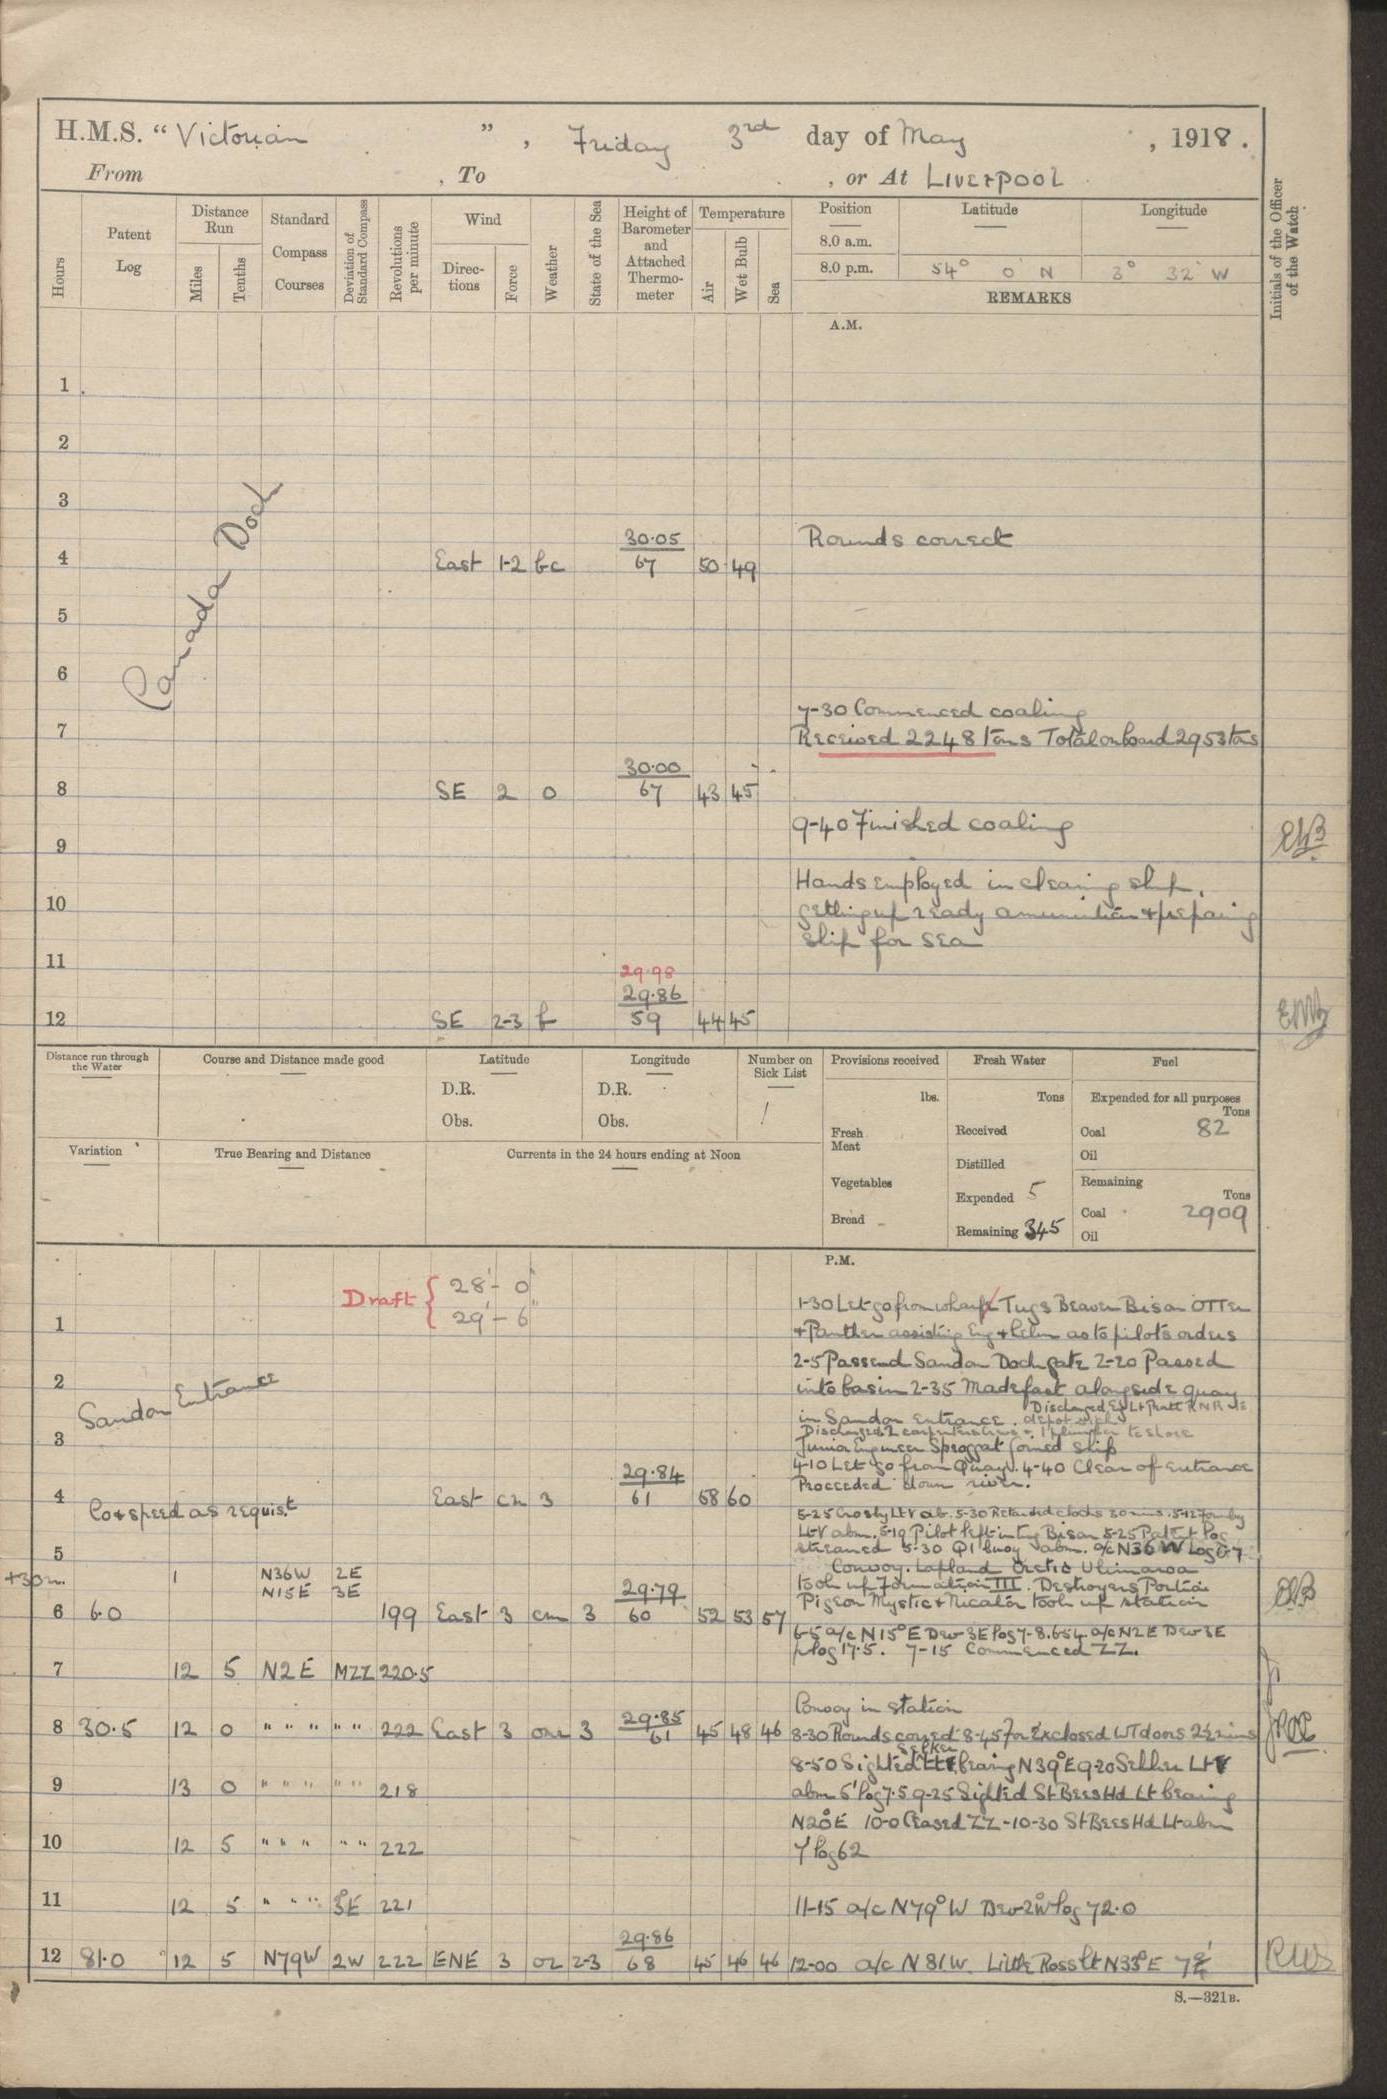 H.M.S. "Victorian", Friday 3rd day of May, 1918.
From , To , or At LIVERPOOL
Hours
Patent Log
Distance Run
Miles
Tenths
Standard Compass Courses
Deviation of Standard Compass
Revolutions per minute
Wind
Directions
Force
Weather
State of the Sea
Height of Barometer and Attached Thermometer
Temperature
Air
Wet Bulb
Sea
Position Latitude Longitude
8.0 a.m.
8.0 p.m. 54° 0' N 3° 32' W
REMARKS
Initials of the Officer of the Watch
A.M.
1
2
3
Canada Dock
30.05
4 East 1-2 bc 67 50 49 Rounds correct
5
6
7-30 Commenced coaling
7 Received 2248 tons Total on board 2953 tons
30.00
8 SE 2 0 67 43 45
9-40 Finished coaling
9
Hands employed in cleaning ship,
10 getting up ready amunition & preparing
ship for sea
11
29.98
29.86
12 SE 2-3 f 59 44 45
Distance run through the Water
Course and Distance made good
Latitude
D.R.
Obs.
Longitude
D.R.
Obs.
Number on Sick List
1
Provisions received
lbs.
Fresh Meat
Vegetables
Bread
Fresh Water
Tons
Received
Distilled
Expended 5
Remaining 345
Fuel
Expended for all purposes
Tons
Coal 82
Oil
Remaining
Tons
Coal 2909
Oil
Variation
True Bearing and Distance
Currents in the 24 hours ending at Noon
P.M.
Draft { 28'- 0"
29'- 6"
1-30 Let go from wharf Tugs Beaver Bison OTTER
1 & Panther assisting Eng & helm as to pilots orders
2-5 Passed Sandon Dock gate 2-20 Passed
2 into basin 2-35 Made fast alongside quay
Sandon Entrance
in Sandon Entrance. Discharged Lt Pratt RNR
3
Junior Engineer Sproggat joined ship
4-10 Let go from Quay. 4-40 Clear of entrance
29.84
4 East cm 3 61 58 60 Proceeded down river.
Co & speed as requist.
5-25 Crosby LtV ab. 5-30 Retarded clocks 30 mins. 5-12 Formby
LtV abm. 5-19 Pilot left in tug Bison 5-25 Patent Log
5 streamed 5-30 Q1 buoy abm. a/c N36W Log 0.7
+30m. 1 N36W 2E Convoy. Lapland Orctic Ulimaroa
N15E 3E took up Formation III. Destroyers Portia
29.79
6 6.0 199 East 3 cm 3 60 52 53 57 Pigeon Mystic & Nicator took up station
6-5 a/c N15°E Dev 3E log 7-8. 6-54 a/c N2E Dev 3E
p log 17.5. 7-15 Commenced ZZ.
7 12 5 N2E MZZ 220.5
Convoy in station
29.85
8 30.5 12 0 " " " " " 222 East 3 3 61 45 48 46 8-30 Rounds correct 8-45 For Ex closed WT doors 2½ mins
8-50 Sighted Selker LtV bearing N39°E 9-20 Selker LtV
9 13 0 " " " " " 218 abm 5' log 7.5 9-25 Sighted St Bees Hd Lt bearing
N20°E 10-0 Ceased ZZ - 10-30 St Bees Hd Lt abm
10 12 5 " " " " " 222 7' log 62
11 12 5 " " " 3°E 221 11-15 a/c N79°W Dev 2°W log 72.0
29.86
12 81.0 12 5 N79W 2W 222 ENE 3 oz 2-3 68 45 46 46 12-00 a/c N 81W. Little Ross Lt N33°E
S.—321B.